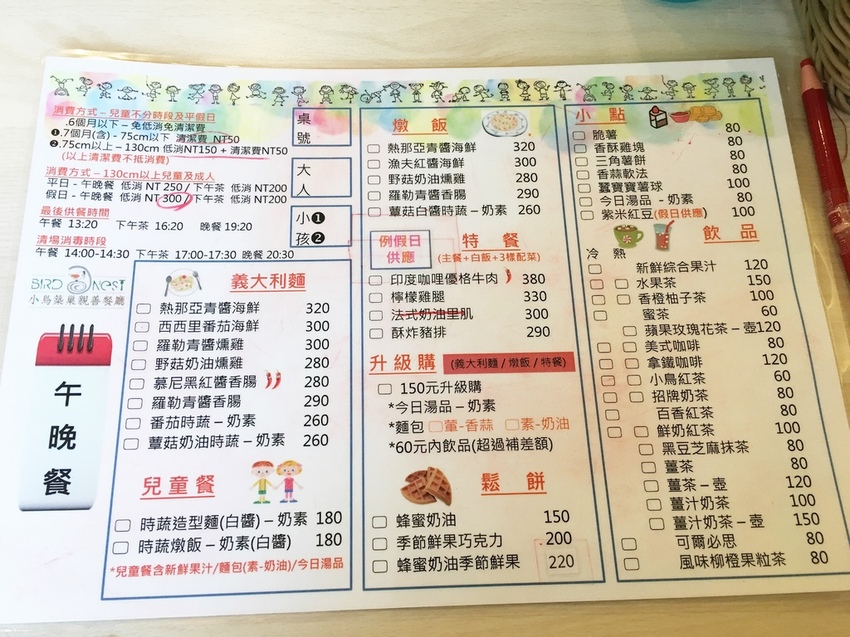 消費方式 – 兒童不分時段及平假日
.6個月以下 – 免低消免清潔費
❶.7個月(含) - 75cm以下 清潔費 NT50
❷.75cm以上 – 130cm 低消NT150 + 清潔費NT50
(以上清潔費不抵消費)
消費方式 – 130cm以上兒童及成人
平日 - 午晚餐 低消 NT 250 / 下午茶 低消 NT200
假日 - 午晚餐 低消 NT 300 / 下午茶 低消 NT200
最後供餐時間
午餐 13:20 下午茶 16:20 晚餐 19:20
清場消毒時段
午餐 14:00-14:30 下午茶 17:00-17:30 晚餐 20:30
桌號
大人
小❶
孩❷
BIRD nest
小鳥築巢親善餐廳
午晚餐
義大利麵
熱那亞青醬海鮮 320
西西里番茄海鮮 300
羅勒青醬燻雞 300
野菇奶油燻雞 280
慕尼黑紅醬香腸 280
羅勒青醬香腸 290
番茄時蔬 – 奶素 260
蕈菇奶油時蔬 – 奶素 260
兒童餐
時蔬造型麵(白醬) – 奶素 180
時蔬燉飯 – 奶素(白醬) 180
*兒童餐含新鮮果汁/麵包(素-奶油)/今日湯品
燉飯
熱那亞青醬海鮮 320
漁夫紅醬海鮮 300
野菇奶油燻雞 280
羅勒青醬香腸 290
蕈菇白醬時蔬 – 奶素 260
例假日
供應
特餐
(主餐+白飯+3樣配菜)
印度咖哩優格牛肉 380
檸檬雞腿 330
法式奶油里肌 300
酥炸豬排 290
升級購 (義大利麵 / 燉飯 / 特餐)
150元升級購
*今日湯品 – 奶素
*麵包 葷-香蒜 素-奶油
*60元內飲品(超過補差額)
鬆餅
蜂蜜奶油 150
季節鮮果巧克力 200
蜂蜜奶油季節鮮果 220
小點
脆薯 80
香酥雞塊 80
三角薯餅 80
香蒜軟法 80
蠶寶寶薯球 100
今日湯品 - 奶素 80
紫米紅豆(假日供應) 100
飲品
冷 熱
新鮮綜合果汁 120
水果茶 150
香橙柚子茶 100
蜜茶 60
蘋果玫瑰花茶 – 壺120
美式咖啡 80
拿鐵咖啡 120
小鳥紅茶 60
招牌奶茶 80
百香紅茶 80
鮮奶紅茶 100
黑豆芝麻抹茶 80
薑茶 80
薑茶 – 壺 120
薑汁奶茶 100
薑汁奶茶 – 壺 150
可爾必思 80
風味柳橙果粒茶 80